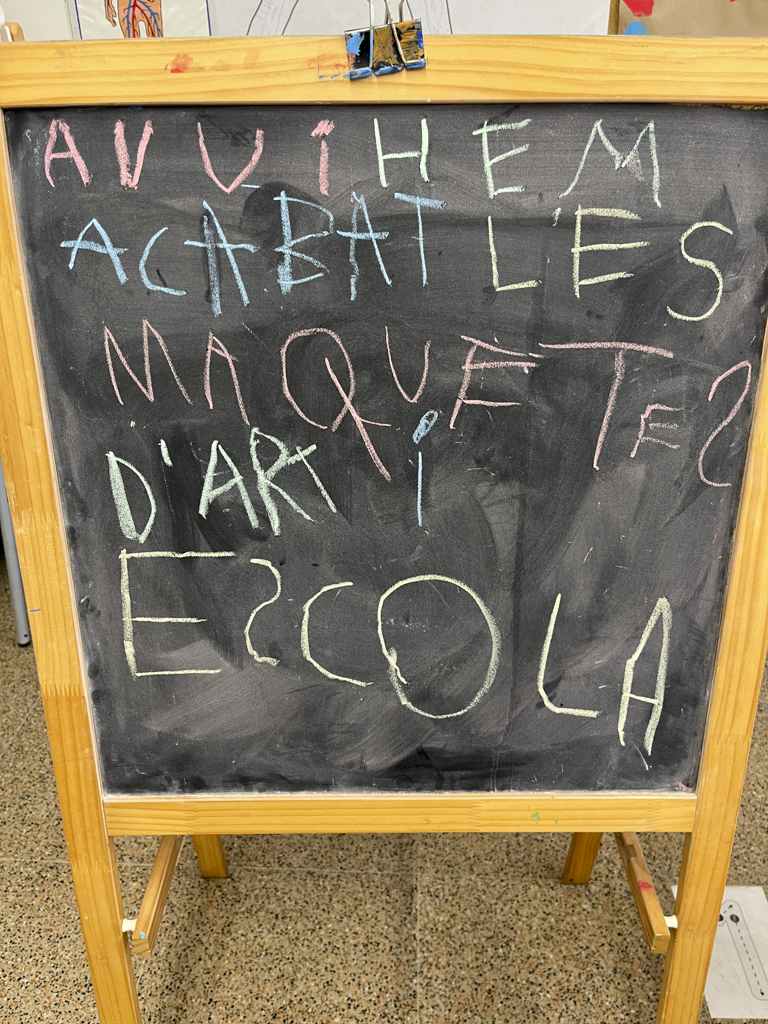 AVUI HEM
ACABAT LES
MAQUETES
D'ART i
ESCOLA